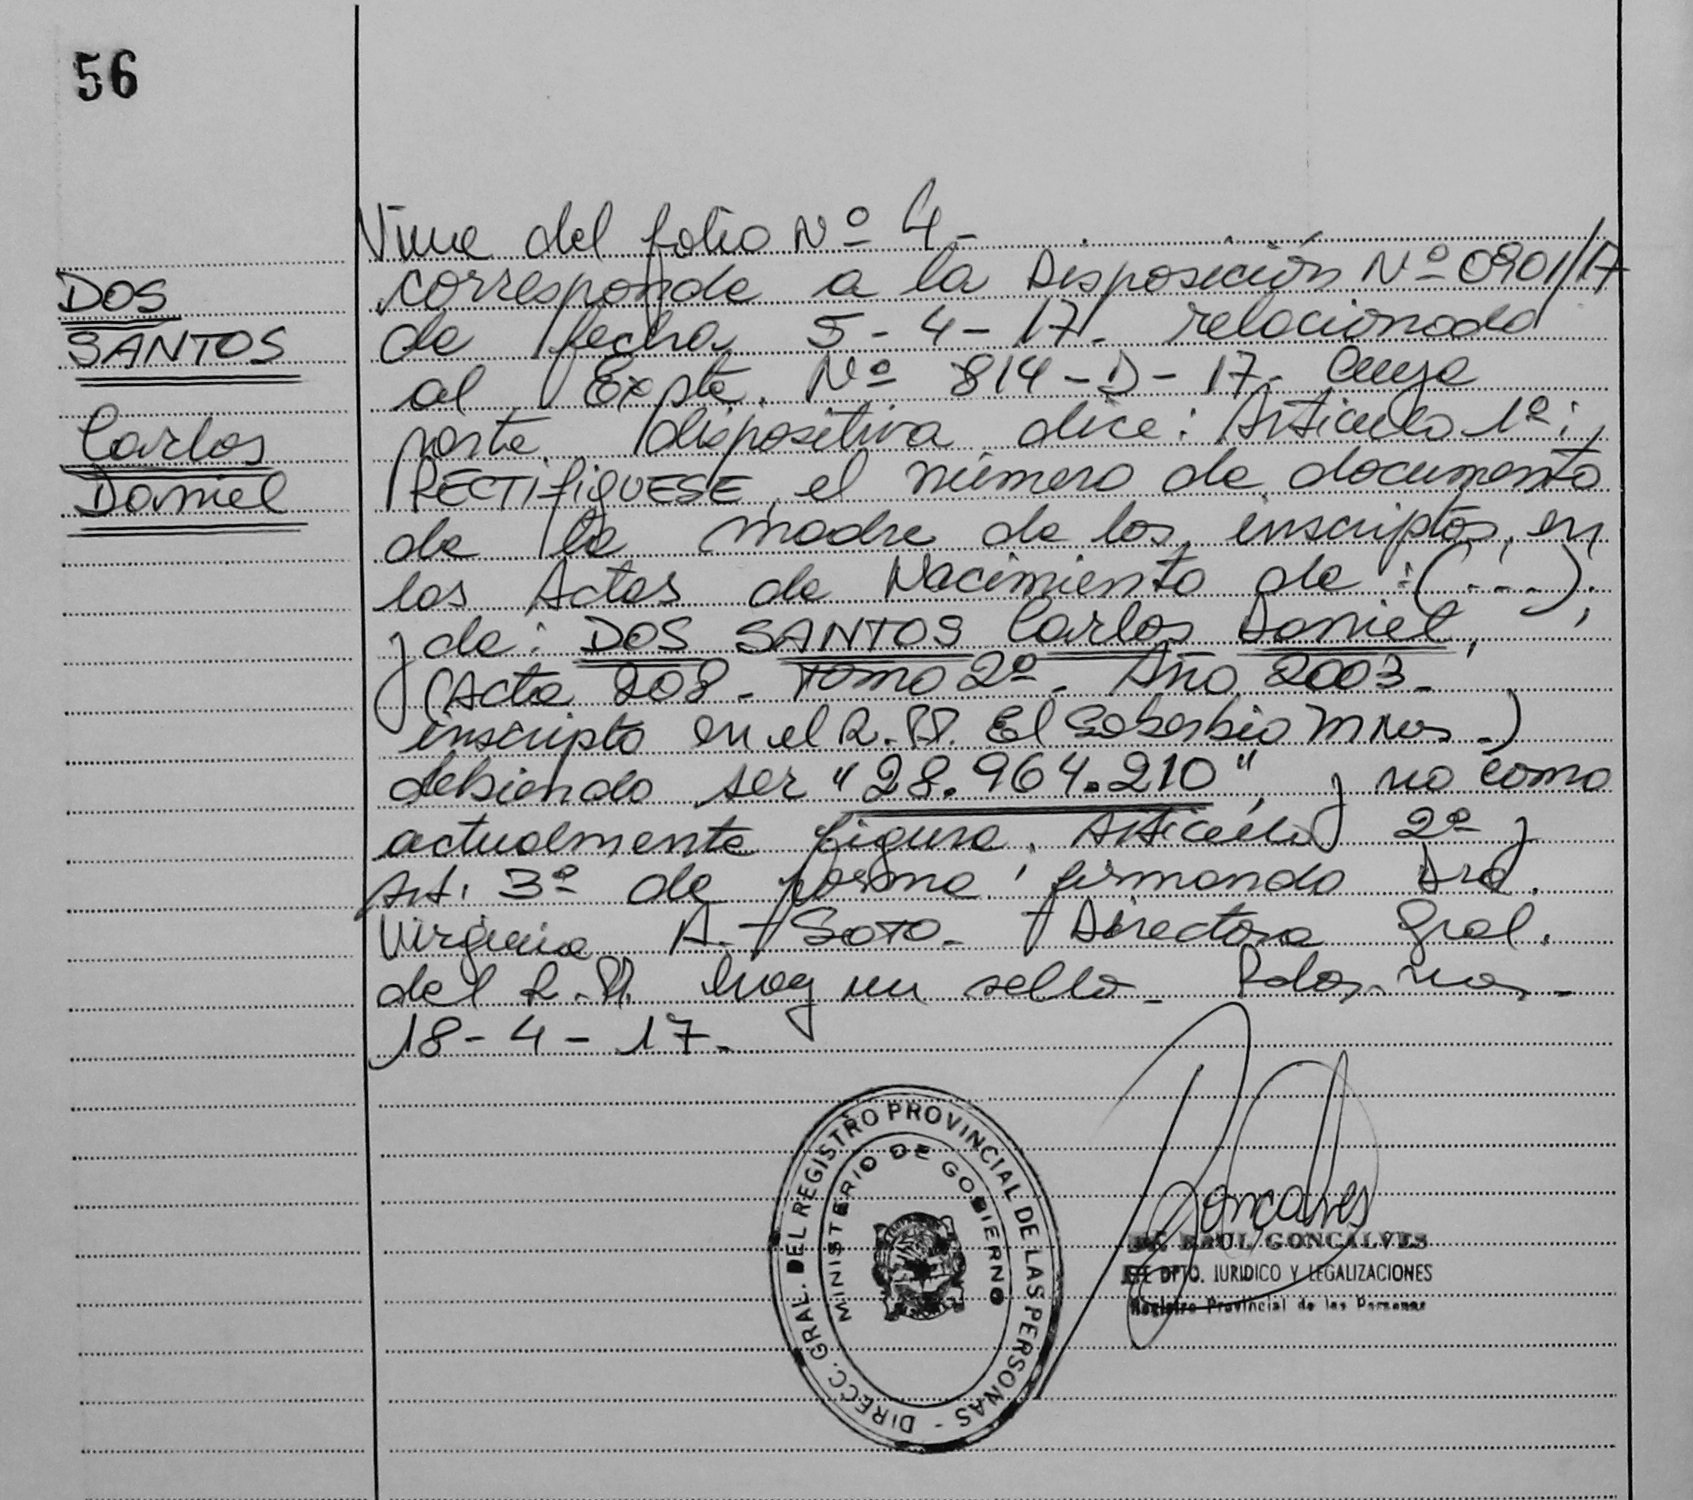 56
DOS
SANTOS
Carlos
Daniel
Viene del folio Nº 4-
corresponde a la Disposición Nº 0901/17
de fecha 5-4-17- relacionado
al Expte. Nº 814-D-17- Cuya
parte dispositiva dice: Artículo 1º:
RECTIFIQUESE el número de documento
de la madre de los inscriptos en
las Actas de Nacimiento de :(...);
y de: DOS SANTOS Carlos Daniel,
(Acta 208- Tomo 2º- Año 2003-
inscripto en el R.P. El Soberbio Mnes-)
debiendo ser "28.964.210", y no como
actualmente figura. Artículo 2º y
Art. 3º de forma, firmando Dra.
Virginia A. Soto- Directora Gral.
del R.P. hay un sello- Pdas-nas-
18-4-17-
DIRECC. GRAL. DEL REGISTRO PROVINCIAL DE LAS PERSONAS -
MINISTERIO DE GOBIERNO
Goncalves
RAUL GONCALVES
DPTO. JURIDICO Y LEGALIZACIONES
Registro Provincial de las Personas